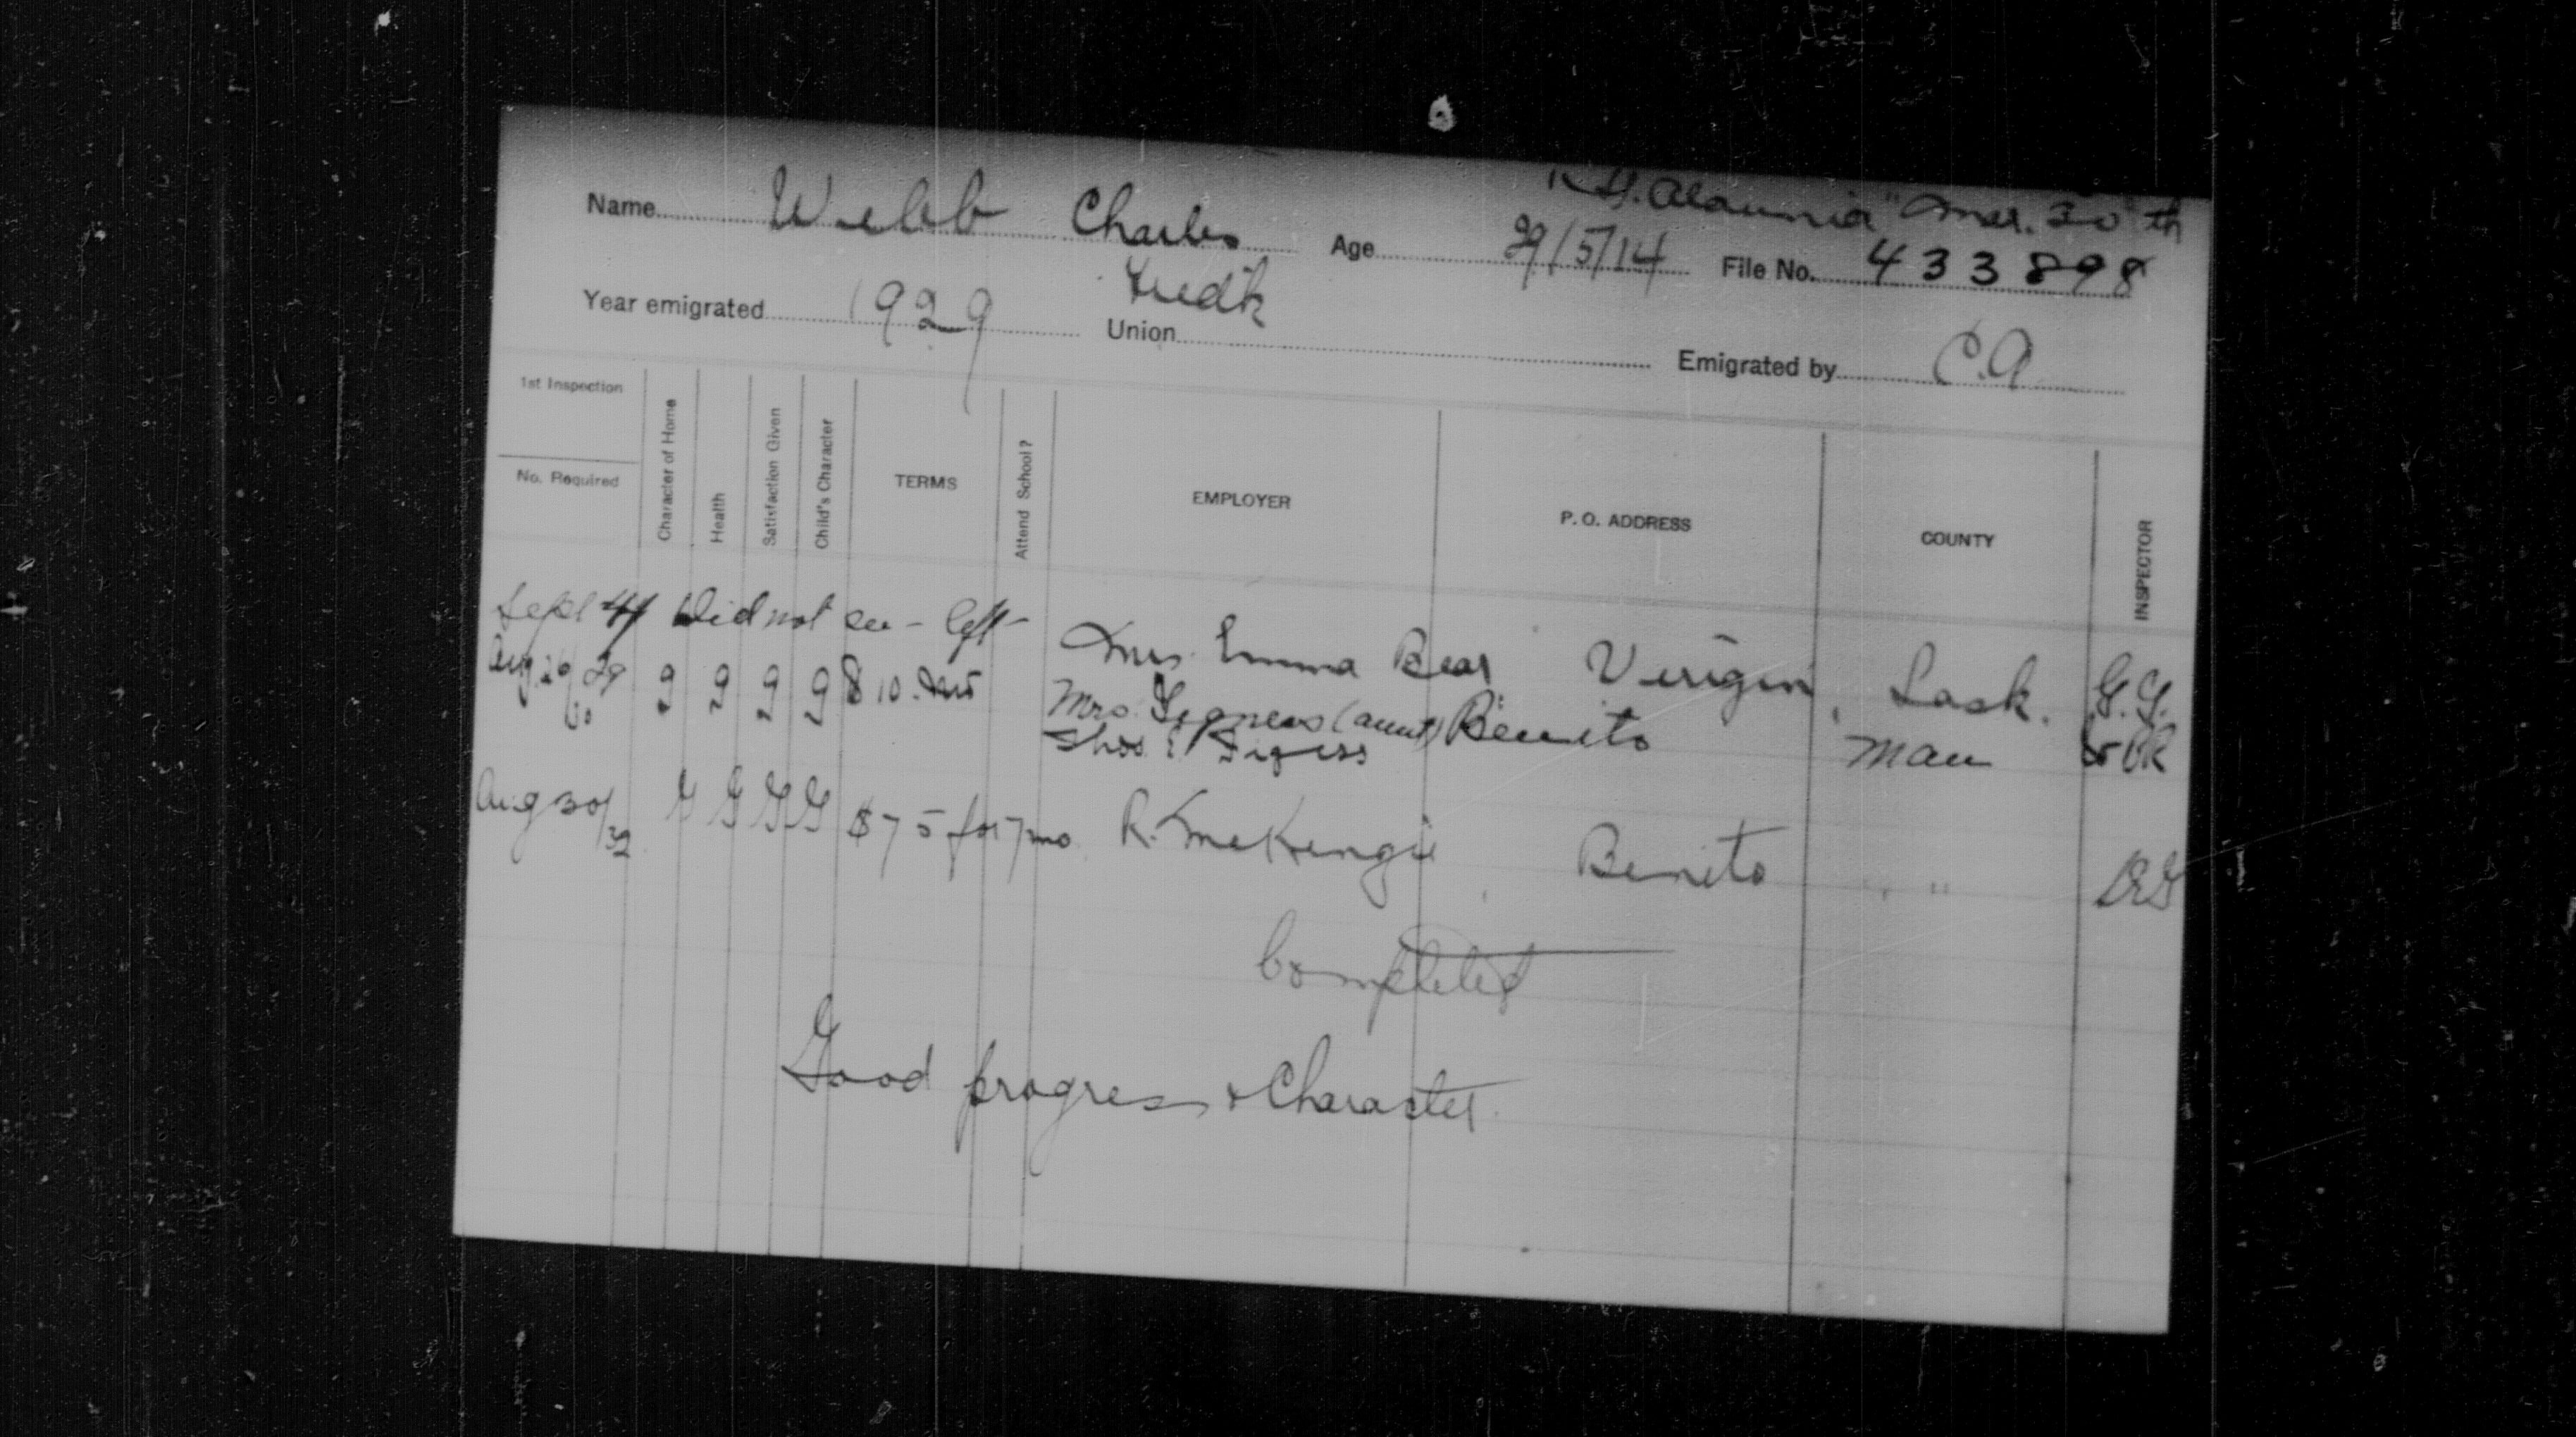 Alaunia" Mar. 30th
Name Webb Charles Age 29/5/14 File No. 433898
Fredk
Year emigrated 1929 Union Emigrated by C.A
1st Inspection
No. Required
Character of Home
Health
Satisfaction Given
Child's Character
TERMS
Attend School?
EMPLOYER
P. O. ADDRESS
COUNTY
INSPECTOR
Sept 4 Did not see - left - Mrs. Emma Bear Verigin, Sask. G.G.
Aug 29 g g g g $10. Mrs. (aunt) Benito Man
Aug 30/32 G G G G $75 for 7 mo R. McKenzie Benito " "
Completed
Good progress & Character